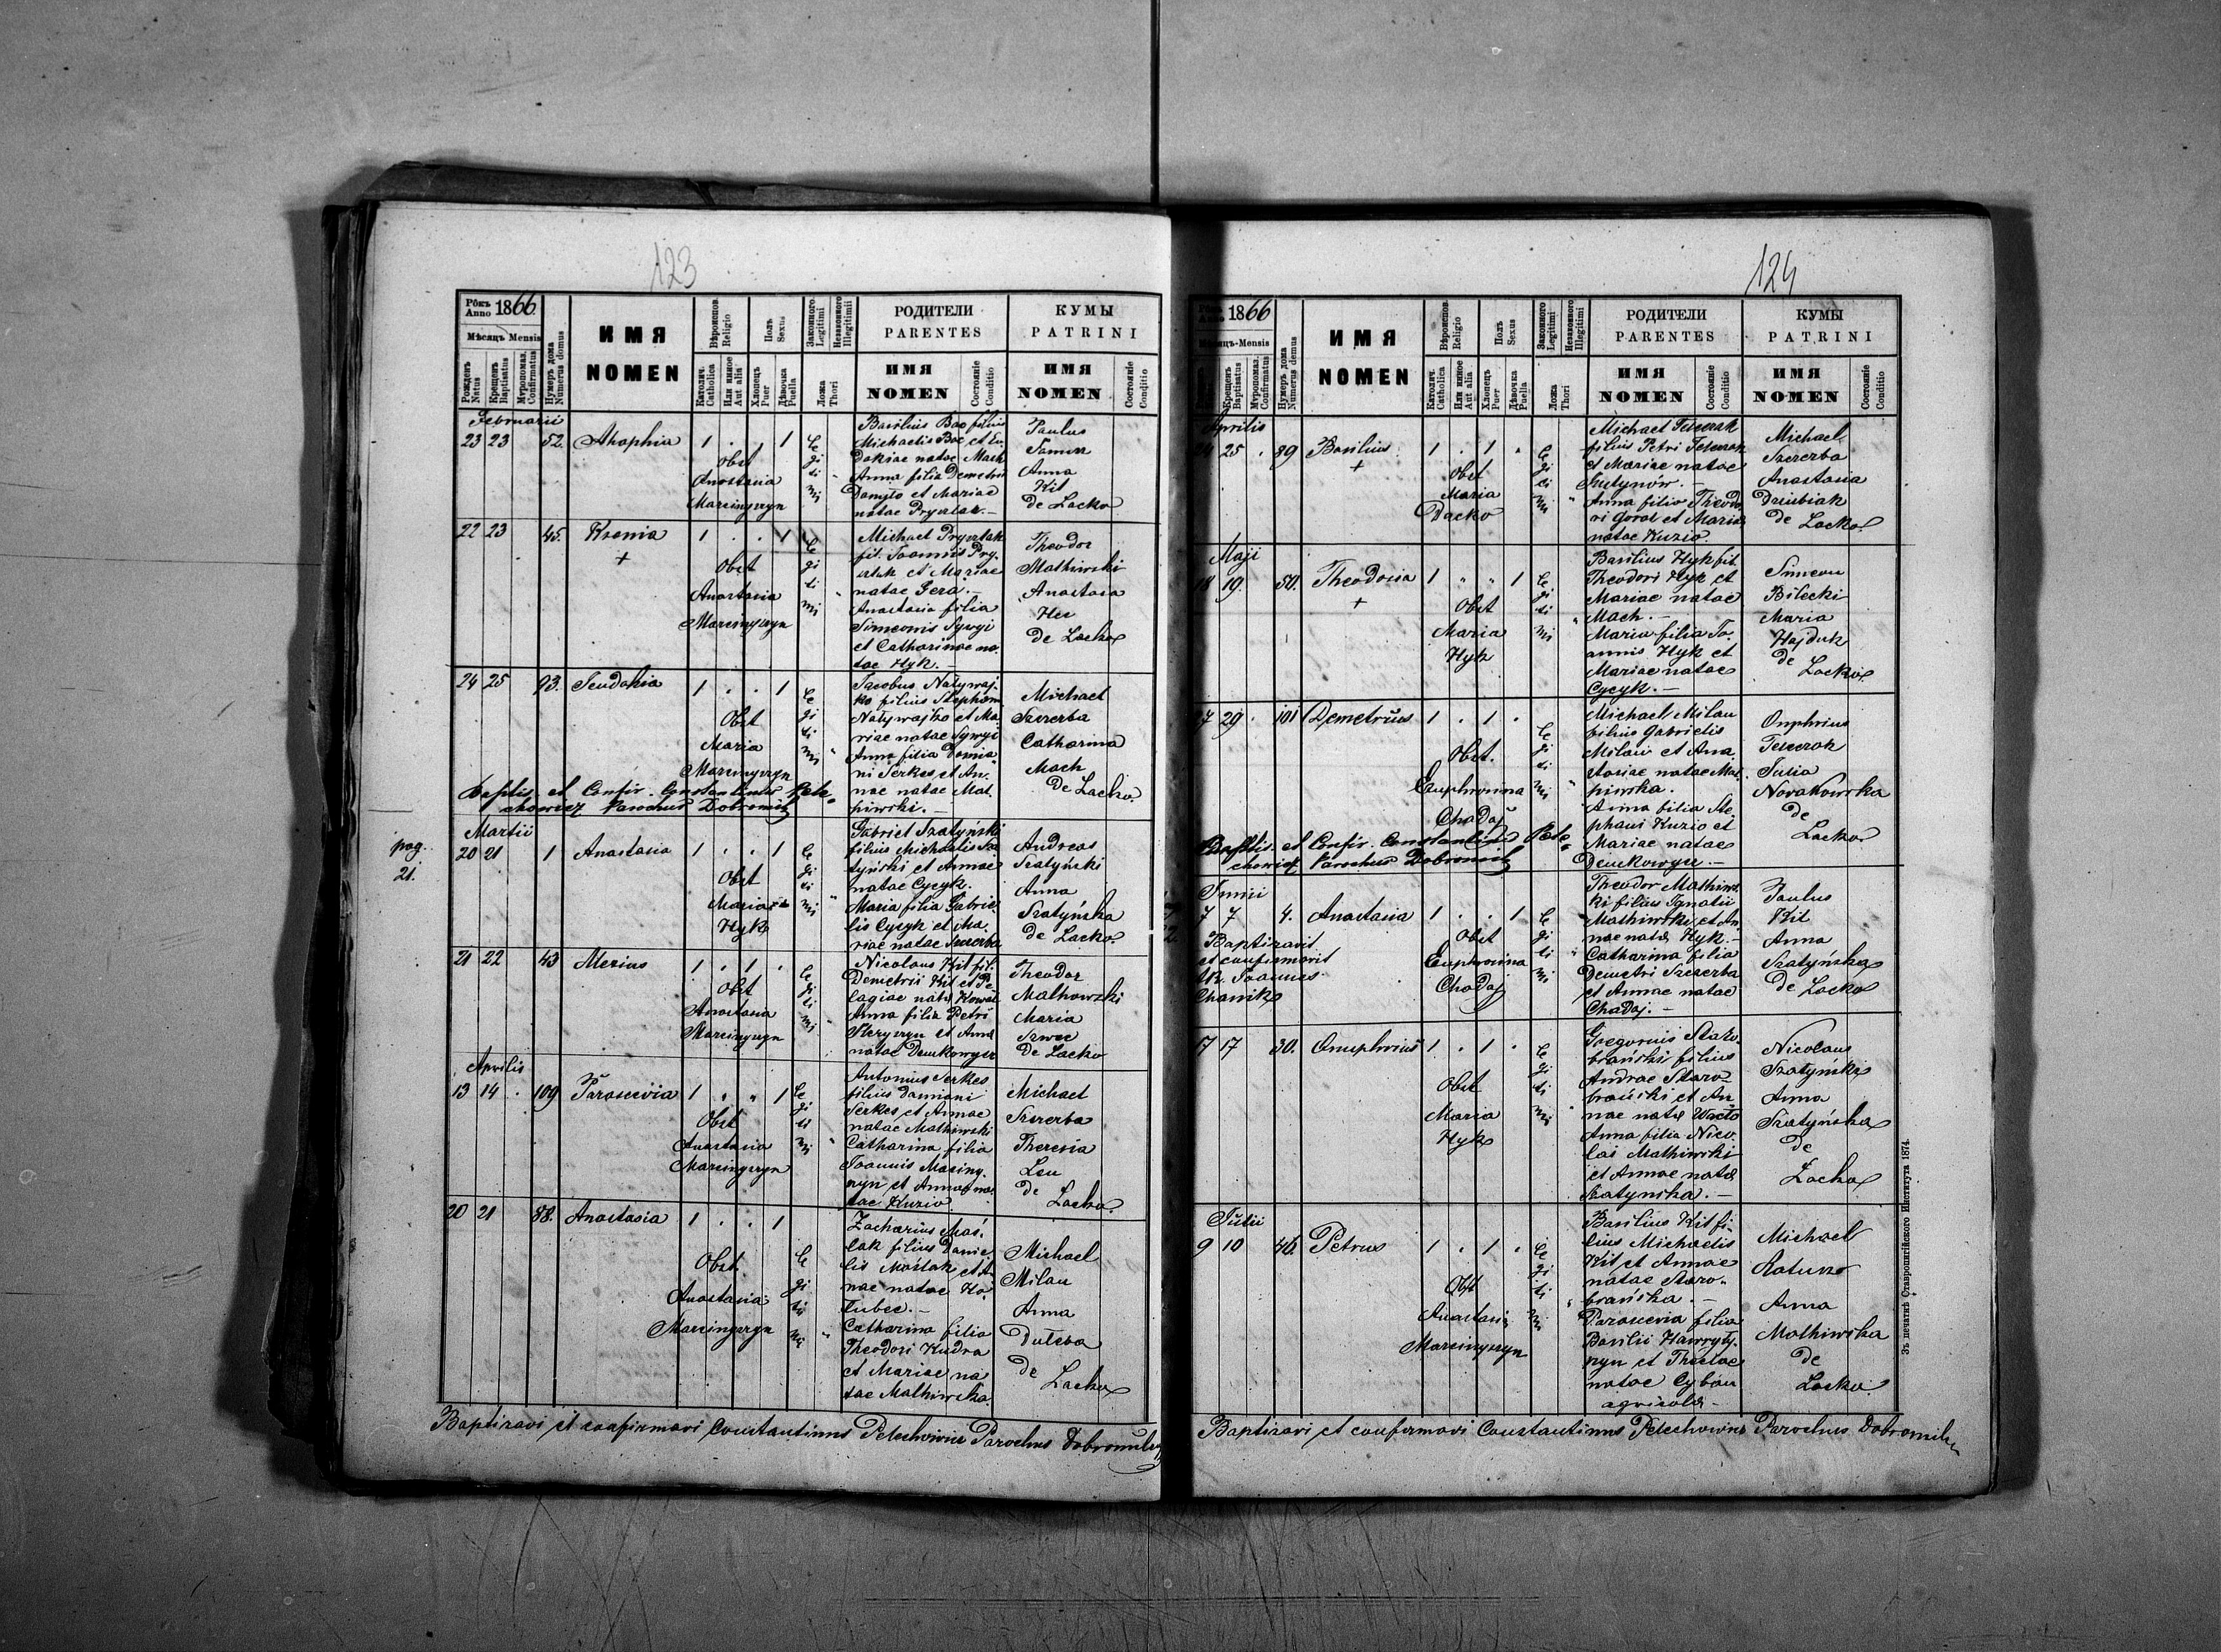 123
Рôкъ Anno 1866
Мѣсяцъ Mensis
Рожденъ Natus
Крещенъ Baptisatus
Муропомаз. Confirmatus
Нумеръ дома Numerus domus
ИМЯ
NOMEN
Вѣроиспов. Religio
Католич. Catholica
Или иное Aut alia
Полъ Sexus
Хлопецъ Puer
Дѣвочка Puella
Законного Legitimi
Незаконного Illegitimi
Ложа Thori
РОДИТЕЛИ
PARENTES
ИМЯ
NOMEN
Состояніе Conditio
КУМЫ
PATRINI
ИМЯ
NOMEN
Состояніе Conditio
Februarii
23 23 52. Ahaphia 1 . . 1
Obst
Anastasia
Marcinyszyn
Le
gi
ti
mi
Basilius Bac filius
Michaelis Bac et Eu
dokiae natae Mach
Anna filia Demetrii
Danyło et Mariae
natae Pryszlak. —
Paulus
Anna
Kit
de Lacko
22 23 45. Ksenia 1 . . 1
+
Obst
Anastasia
Marcinyszyn
Le
gi
ti
mi
Michael Pryszlak
fil. Joannis Pry-
szlak et Mariae
natae Gera. —
Anastasia filia
Simeonis Sywyi
et Catharinae na-
tae Hyk. —
Theodor
Mathiwski
Anastasia
de Lacko
24 25 93. Jeudokia 1 . . 1
Obst
Maria
Marcinyszyn
Le
gi
ti
mi
Jacobus Natywaj-
ko filius Stephani
Natywajko et Ma-
riae natae Sywyi
Anna filia Damia-
ni Serkes et An-
nae natae Mat-
hiwski. —
Michael
Szczerba
Catharina
Mach
De Lacko.
Baptis. et Confir. Constantinus Pete-
chowicz Parochus Dobromil
pag.
21.
Martii
20 21 1 Anastasia 1 . . 1
Obst
Maria
Hyk
Le
gi
ti
mi
Gabriel Szatyński
filius Michaelis Sza
tyński et Annae
natae Cycyk.
Maria filia Gabrie-
lis Cycyk et Ma-
riae natae Szczerba
Andreas
Szatyński
Anna
Szatyńska
de Lacko.
21 22 43 Alexius 1 . 1 .
Obst
Anastasia
Marcinyszyn
Le
gi
ti
mi
Nicolaus Kit fil.
Demetrii Kit et Pe
lagiae natae Kowal
Anna filia Petri
et Anna
natae Demkowycz
Theodor
Malhowski
Maria
Szwec
De Lacko
Aprilis
13 14 . 109 Parascevia 1 " " 1
Obst
Anastasia
Marcinyszyn
Le
gi
ti
mi
Antonius Serkes
filius Damiani
Serkes et Annae
natae Mathiwski
Catharina filia
Joannis Masiny-
et Annae na-
tae Kuzio
Michael
Szczerba
Theresia
de
Lacko.
20 21 88. Anastasia 1 . . 1
Obst.
Anastasia
Marcinyszyn
Le
gi
ti
mi
Zacharius Maś-
lak filius Danie
lis Maślak et A
nae natae Ho-
lubec. —
Catharina filia
Theodori Kudra
et Mariae na
tae Mathiwska
Michael
Milan
Anna
Duleba
De
Lacko
Baptizavi et confirmavi Constantinus Petechowicz Parochus Dobromil
124
1866
Мѣсяцъ-Mensis
Крещенъ Baptisatus
Муропомаз. Confirmatus
Нумеръ дома Numerus domus
ИМЯ
NOMEN
Вѣроиспов. Religio
Католич. Catholica
Или иное Aut alia
Полъ Sexus
Хлопецъ Puer
Дѣвочка Puella
Законного Legitimi
Незаконного Illegitimi
Ложа Thori
РОДИТЕЛИ
PARENTES
ИМЯ
NOMEN
Состояніе Conditio
КУМЫ
PATRINI
ИМЯ
NOMEN
Состояніе Conditio
Aprilis
25 . 89 Basilius 1 . 1 .
+
Obst
Maria
Dacko
Le
gi
ti
mi
Michael Teterzak
filius Petri Teterzak
et Mariae natae
Anna filia Theodo
ri Goral et Mariae
natae Kuzio.
Michael
Szczerba
Anastasia
Dziubiak
De Lacko
Maji
18 19. 50. Theodosia 1 " " 1
+
Obst
Maria
Hyk
Le
gi
ti
mi
Basilius Hyk fil.
Theodori Hyk et
Mariae natae
Mach. —
Maria filia Jo-
annis Hyk et
Mariae natae
Cycyk. —
Simeon
Bilecki
Maria
Hajduk
de
Lacko.
27 29 . 101 Demetrius 1 . 1 .
Obst.
Euphrosina
Chadaj
Le
gi
ti
mi
Michael Milan
filius Gabrielis
Milan et Ana
stasiae natae Mat-
hiwska.
Anna filia Ste-
phani Kuzio et
Mariae natae
Demkowycz. —
Onphrius
Teterzak
Julia
Novakowska
de
Lacko
Baptis. et Confir. Constantinus Pete-
chowicz Parochus Dobromil
Junii
7 7 4. Anastasia 1 . . 1
Baptizavit
et confirmavit
Joannes
Chanik
Obst
Euphrosina
Chadaj
Le
gi
ti
mi
Theodor Mathiws-
ki filius Ignatii
Mathiwski et An-
nae natae Hyk. —
Catharina filia
Demetri Szczerba
et Annae natae
Chadaj. —
Paulus
Kit
Anna
Szatyńska
De Lacko
17 17 30. Onuphrius 1 . 1 .
Obst
Maria
Hyk
Le
gi
ti
mi
Gregorius Staro-
brański filius
Andrae Staro-
brański et An-
nae natae
Anna filia Nico-
lai Mathiwski
et Annae natae
Szatynska. —
Nicolaus
Szatyński
Anna
Szatyńska
de
Lacko
Julii
9 10 46. Petrus 1 . 1 .
Obst
Anastasia
Marcinyszyn
Le
gi
ti
mi
Basilius Kit fi-
lius Michaelis
Kit et Annae
natae Staro-
brańska. —
Parascevia filia
Basilii Hawryły-
szyn et Theclae
natae Cyban
agricolae
Michael
Anna
Mathiwska
de
Lacko.
Baptizavi et confirmavi Constantinus Petechowicz Parochus Dobromil
Зъ печатнѣ Ставропигійского Института 1874.